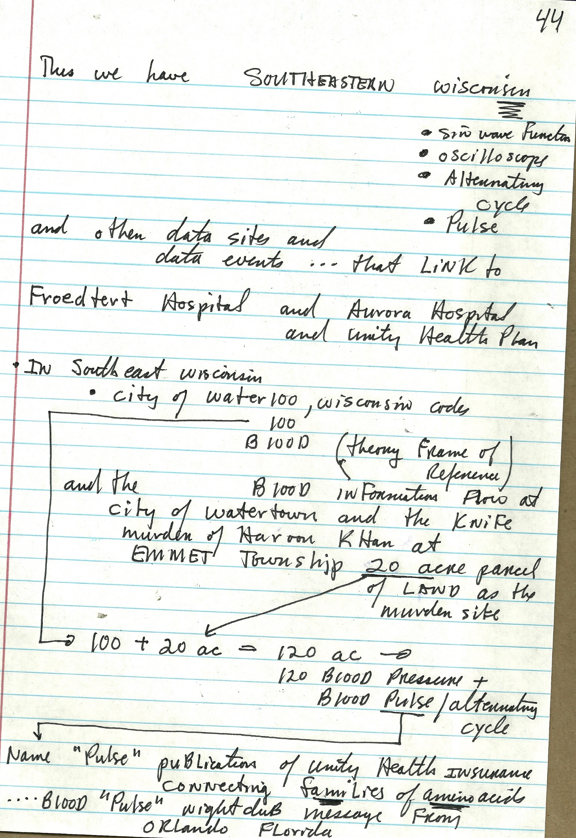 44
Thus we have SOUTHEASTERN wisconsin
• sin wave Function
• oscilloscope
• Alternating
cycle
• Pulse
and other data sites and
data events ... that LiNK to
Froedtert Hospital and Aurora Hospital
and Unity Health Plan
• IN South east wisconsin
• city of water100, wisconsin codes
100
B100D (theory Frame of
Reference)
and the B100D inFormation Flow at
city of watertown and the KNiFe
murder of Haroon KHan at
EMMET Township 20 acre parcel
of LAND as the
murder site
→ 100 + 20 ac = 120 ac →
120 B100D Pressure +
B100D Pulse / alternating
cycle
Name "Pulse" publication of Unity Health INSURANCE
connecting families of amino acids
.... B100D "Pulse" nightclub message From
ORLANDO FLORiDA